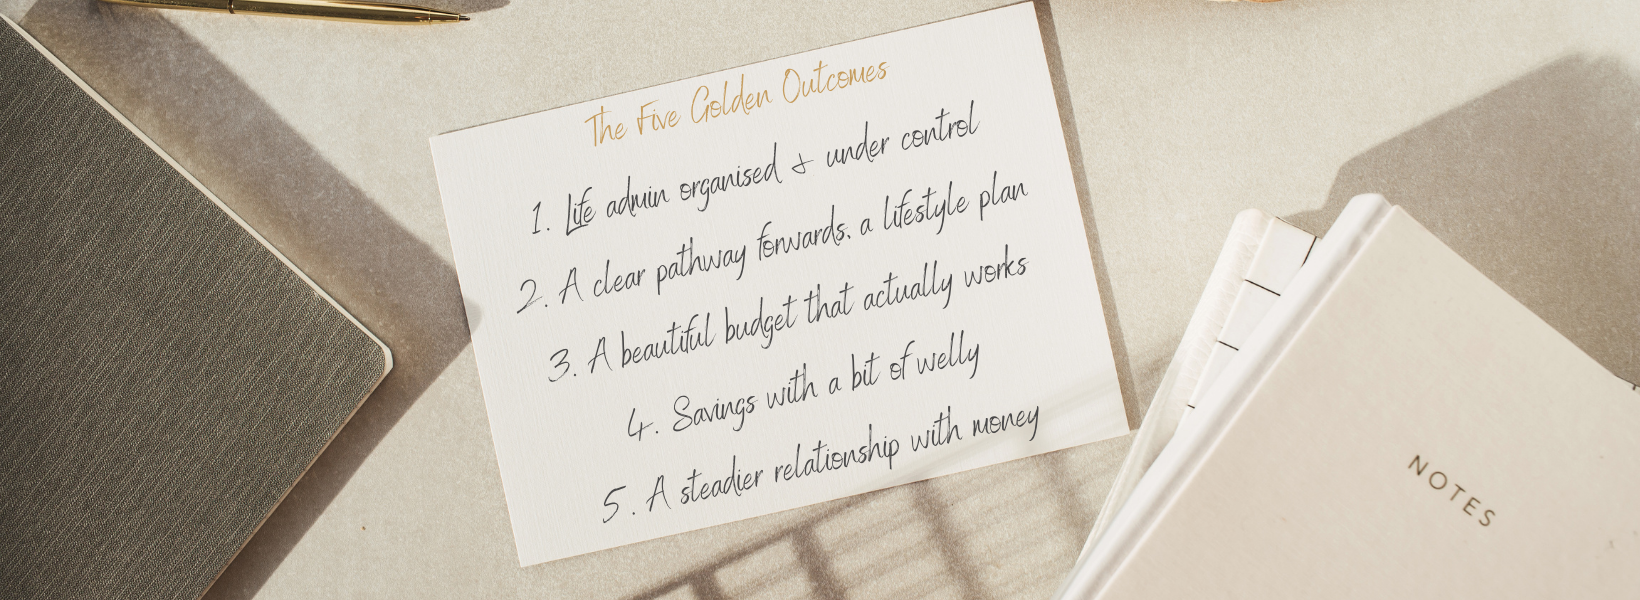 The Five Golden Outcomes
1. Life admin organised & under control
2. A clear pathway forwards. a lifestyle plan
3. A beautiful budget that actually works
4. Savings with a bit of welly
5. A steadier relationship with money
NOTES